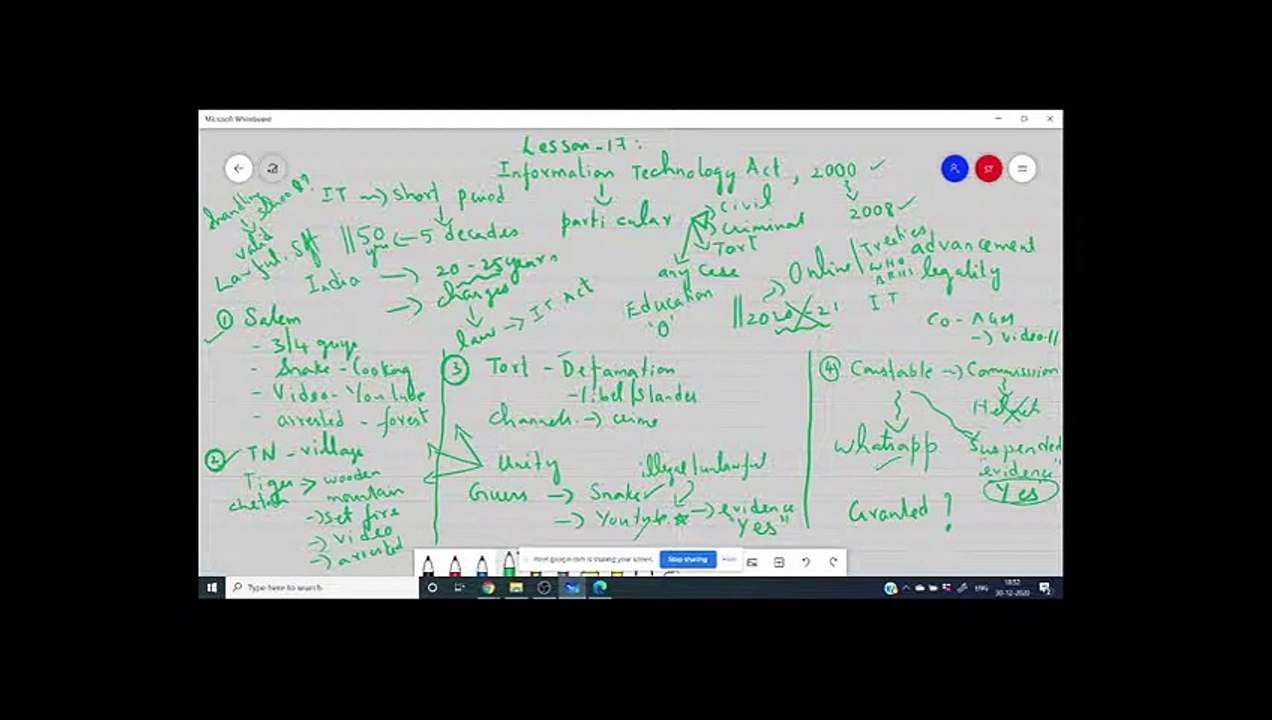 Microsoft Whiteboard
Lesson-17:
Information Technology Act, 2000
2008
IT → short period
50 ← 5 decades
India → 20-25 years
→ changes
law → IT Act
particular
Civil
Criminal
Tort
any case
Education
'0'
Online
Treaties
advancement
legality
2020-21
IT
valid
Lawful
CO-AGM
→ video
① Salem
- 3/4 guys
- Snake-Cooking
- Video-YouTube
- arrested - forest
② TN - village
Tiger → wooden
mountain
→ set fire
→ video
→ arrested
③ Tort - Defamation
- Libel/Slander
Channels → crime
Unity
illegal/unlawful
→ Snake
→ Youtube → evidence
"Yes"
④ Constable → Commission
whatsapp
Suspended
"evidence"
Yes
Granted?
meet.google.com is sharing your screen.
Stop sharing
Hide
Type here to search
ENG
18:52
30-12-2020
ST